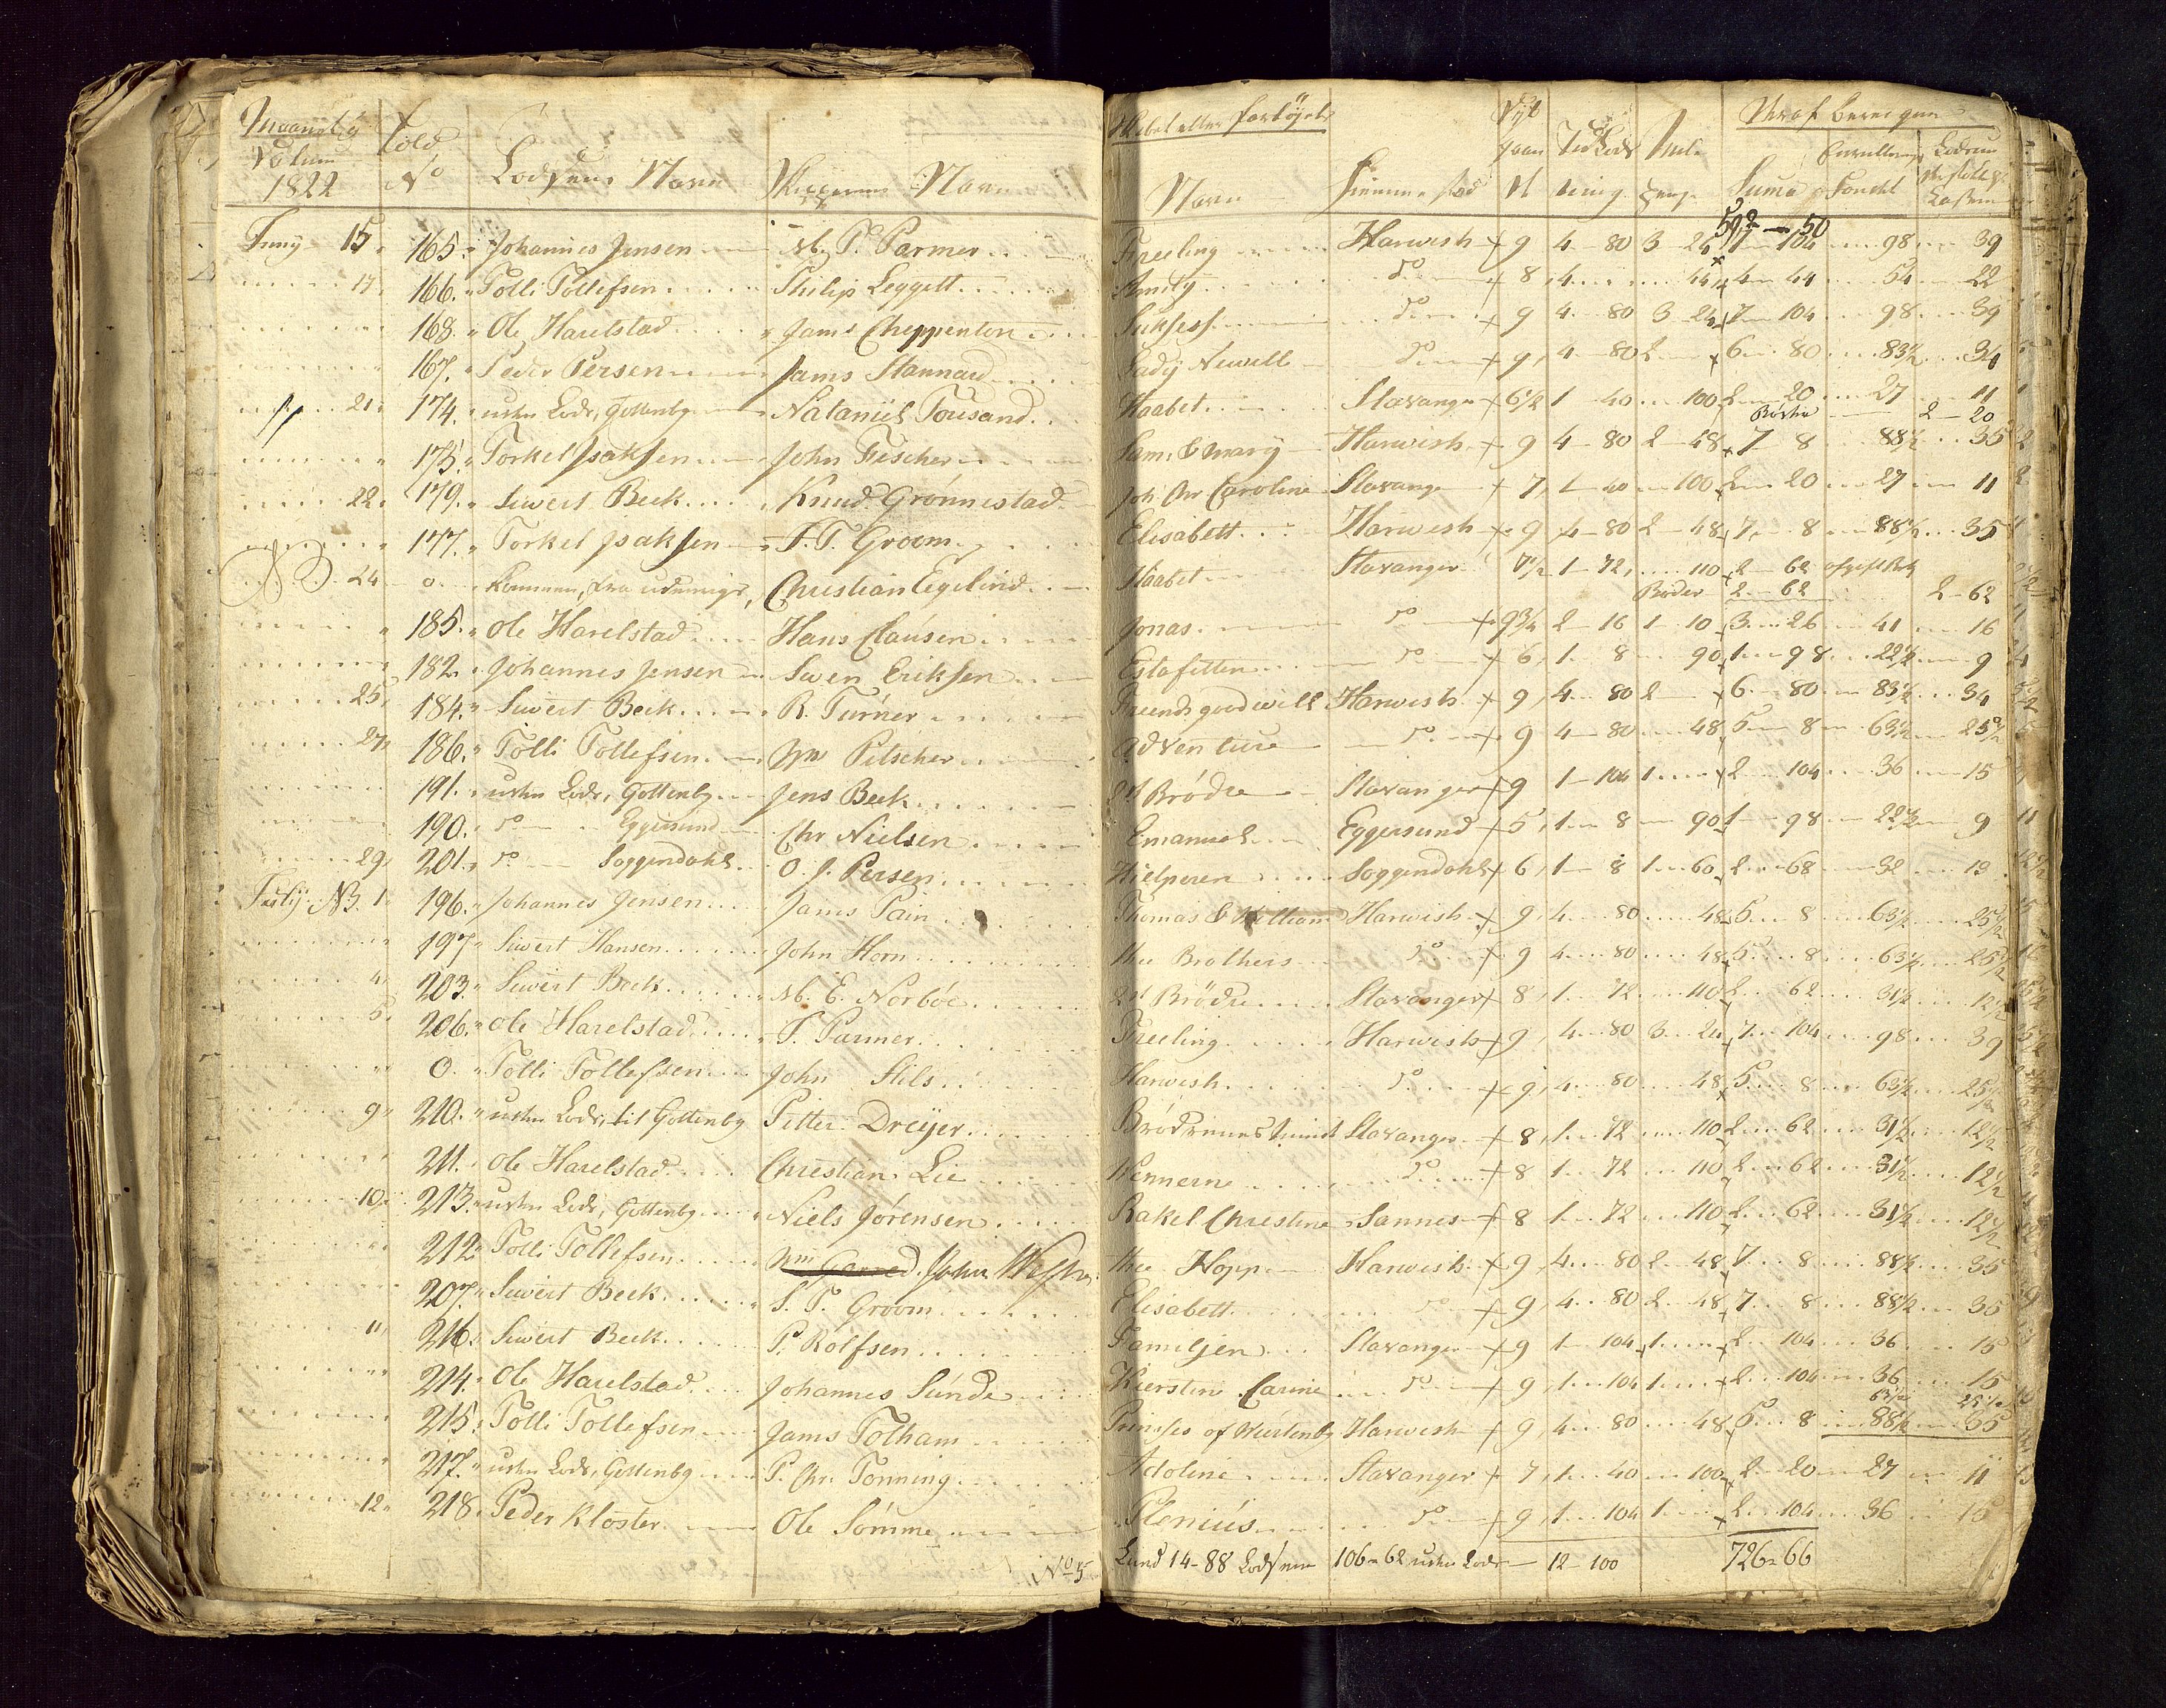 Maanet og Datum 1822 | Told No | Lodsens Navn | Skipperens Navn | Skibet eller Fartöyets Navn | Hiemmestæd
Juny 15. 165. Johannes Jensen M. P. Parmer Freeling Harwish 9 4 - 80 3 - 24 7 - 104 98 39
592 - 50
17. 166. Tolli Tollefsen Philip Leggett Amity do 8 4 44 4 - 44 54 22
" 168. Ole Harelstad Jams Cheppenton Suksess do 9 4 - 80 3 - 24 7 - 104 98 39
" 167. Peder Persen Jams Stannard Lady Newell do 9 4 - 80 2 6 - 80 83½ 34
21. 174. uden Lods, Gottenbg Nataniel Tousand Haabet Stavanger 6½ 1 - 40 100 2 - 20 27 11
2 - 20
" 175. Torkel Isaksen John Fischer Sam. & Mary Harwish 9 4 - 80 2 - 48 7 - 8 88½ 35
22. 179. Siwert Beck Knud Grönnestad Joh. Chr Caroline Stavanger 7 1 - 40 100 2 - 20 27 11
" 177. Torkel Isaksen S. T. Groom Elisabett Harwish 9 4 - 80 2 - 48 7 - 8 88½ 35
NB 24 0 Kommen fra Christian Egelind Haabet Stavanger 7½ 1 - 72 110 2 - 62
Bøder 2 - 62 2 - 62
" 185. Ole Harelstad Hans Clausen Jonas do 9¾ 2 - 16 1 - 10 3 - 26 41 16
" 182. Johannes Jensen Swen Eriksen Estafetten do 6 1 - 8 90 1 - 98 22½ 9
25. 184. Siwert Beck R. Turner Freends goodwill Harwish 9 4 - 80 2 6 - 80 83½ 34
27. 186. Tolli Tollefsen Wm Pitscher Adventure do 9 4 - 80 48 5 - 8 63½ 25½
" 191. uden Lods, Gottenbg Jens Beck 2de Brödre Stavanger 9 1 - 104 1 2 - 104 36 15
" 190. do Eggersund Chr Nielsen Emanuel Eggersund 5 1 - 8 90 1 - 98 22½ 9
29. 201. do Soggendahl O. J. Persen Hielperen Soggendahl 6 1 - 8 1 - 60 2 - 68 32 13
July NB. 1. 196. Johannes Jensen Jams Pain Thomas & William Harwish 9 4 - 80 48 5 - 8 63½ 25½
" 197. Siwert Hansen John Horn the Brothers do 9 4 - 80 48 5 - 8 63½ 25½
4. 203. Siwert Beck M. E. Norböe 2de Brödre Stavanger 8 1 - 72 110 2 - 62 31½ 12½
5. 206. Ole Harelstad P. Parmer Freeling Harwish 9 4 - 80 3 - 24 7 - 104 98 39
" 0. Tolli Tollefsen John Stils Harwish do 9 4 - 80 48 5 - 8 63½ 25½
9. 210. uden Lods, til Gottenbg Pitter Dreyer Brödrenes Stavanger 8 1 - 72 110 2 - 62 31½ 12½
" 211. Ole Harelstad Christian Lie Wennerne do 8 1 - 72 110 2 - 62 31½ 12½
10. 213. uden Lods, Gottenbg Niels Jörensen Rakel Christine Sannes 8 1 - 72 110 2 - 62 31½ 12½
" 212. Tolli Tollefsen Wm Garred John the Hopp Harwish 9 4 - 80 2 - 48 7 - 8 88½ 35
" 207. Siwert Beck S. T. Groom Elisabett do 9 4 - 80 2 - 48 7 - 8 88½ 35
11. 216. Siwert Beck P. Rolfsen Familjen Stavanger 9 1 - 104 1 2 - 104 36 15
" 214. Ole Harelstad Johannes Sunde Kierstin Carine do 9 1 - 104 1 2 - 104 36 15
63½ 25½
" 215. Tolli Tollefsen Jams Tolham Prinses of Wurtenbg Harwish 9 4 - 80 48 5 - 8 88½ 35
" 217. uden Lods, Gottenbg P. Chr. Tonning Adoline Stavanger 7 1 - 40 100 2 - 20 27 11
12. 218. Peder Kloster Ole Sömme Plenius do 9 1 - 104 1 2 - 104 36 15
No 5 Lund 14 - 88 Lodsene 106 - 62 uden Lods 12 - 100 726 - 66